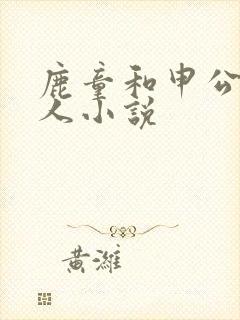 鹿童和申公
人小说
黄潍